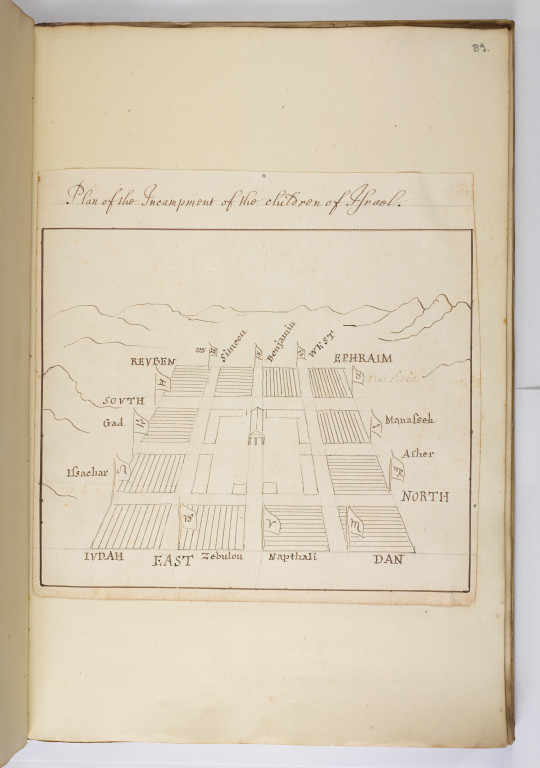 89.
Plan of the Incampment of the children of Israel.
Simeon
Benjamin
WEST
REVBEN
EPHRAIM
SOVTH
Gad
Manasseh
Asher
Issachar
NORTH
IVDAH
EAST
Zebulon
Napthali
DAN